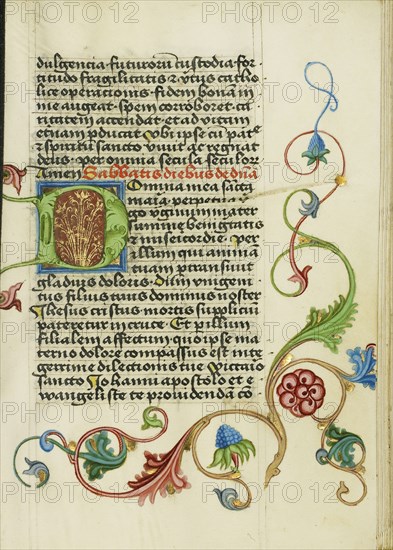 dulgencia · futuroru custodia · for
titudo fragilitatis ⁊ · vtus catho
lice operationis · fidem bonam in
me augeat · spem corroboret · ca
ritatem accendat · et ad vitam
eternam pducat · Qui ipse cu patre
⁊ spiritu sancto viuit ac regnat
deus · per omnia secula seculor
Amen Sabbatis diebus de dna
Domina mea sancta
maria perpetua
go virginum mater
sumne benignitatis
⁊ misericordie · per
illum qui animam
tuam ptransiuit
gladius doloris · Dum vnigeni
tus filius tuus dominus noster
Ihesus cristus mortis supplicium
pateretur in cruce · Et p illum
filialem affectum quo ipse ma
terno dolore compassus est in te
gerrime dilectionis tue Vicario
sancto Iohanni apostolo et e
wangeliste te prouidendam co
PHOTO12